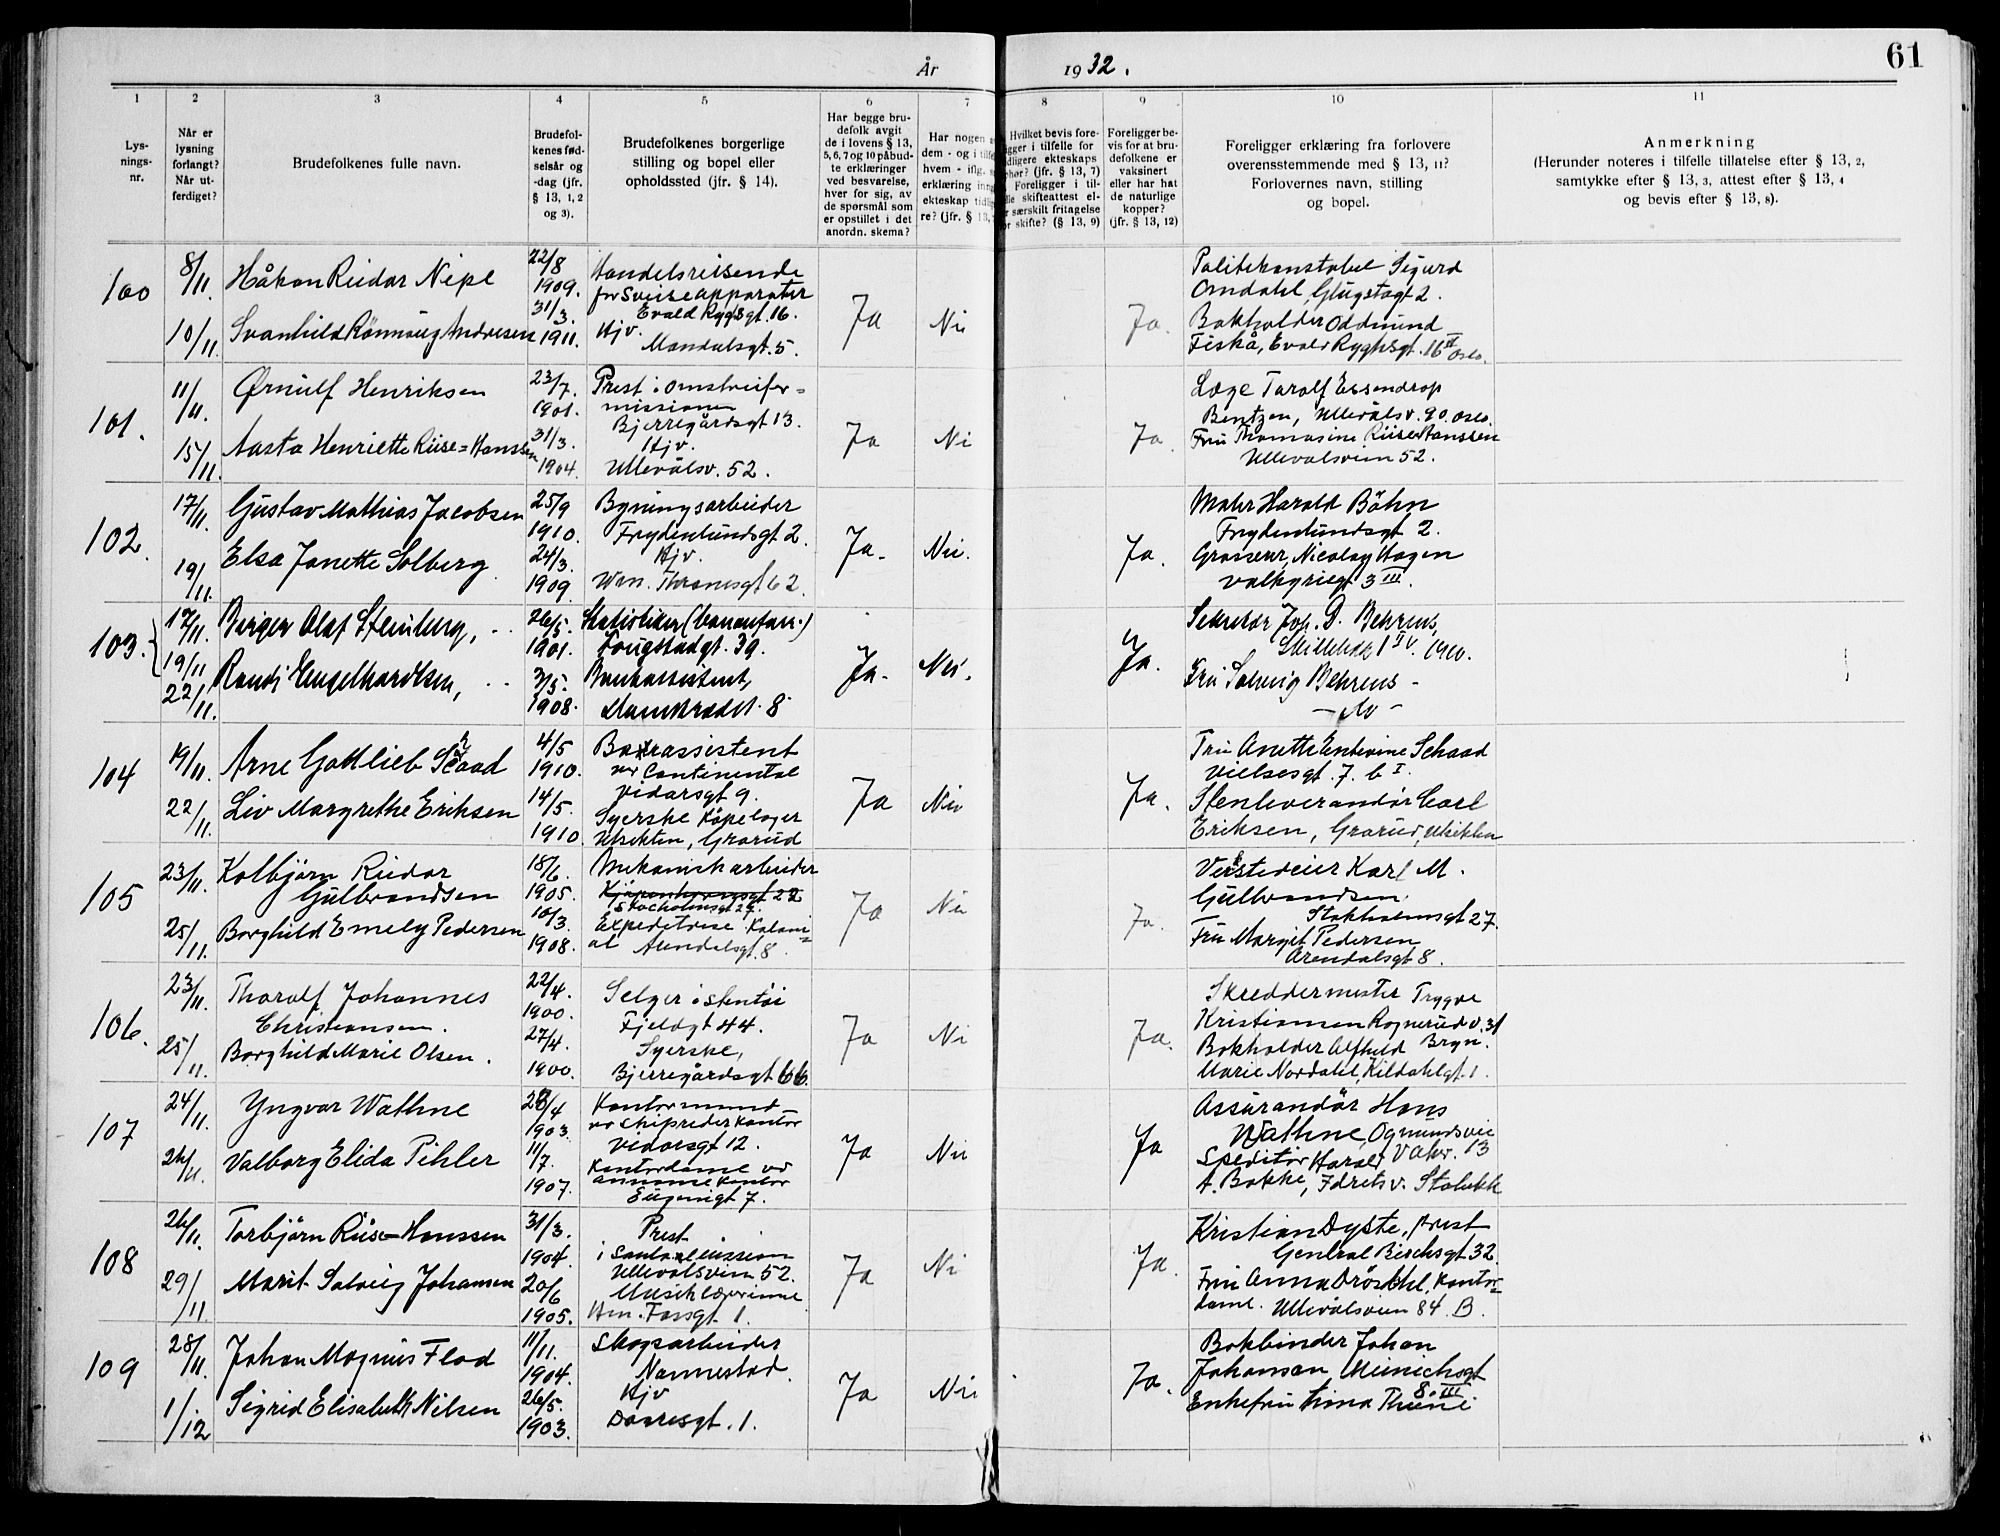 61
År 1932.
1 2 3 4 5 6 7 8 9 10 11
Lys-
nings-
nr.
Når er
lysning
forlangt?
Når ut-
ferdiget?
Brudefolkenes fulle navn.
Brudefol-
kenes fød-
selsår og
-dag (jfr.
§ 13, 1, 2
og 3).
Brudefolkenes borgerlige
stilling og bopel eller
opholdssted (jfr. § 14).
Har begge bru-
defolk avgit
de i lovens § 13,
5, 6, 7 og 10 påbud-
te erklæringer
ved besvarelse,
hver for sig, av
de spørsmål som
er opstillet i det
anordn. skema?
Har nogen
dem - og i
hvem - iflg.
erklæring
ekteskap
re? (jfr. § 13,
Hvilket bevis fore-
ligger i tilfelle for
ekteskaps
(jfr. § 13, 7)
Foreligger i til-
skifteattest el-
særskilt fritagelse
skifte? (§ 13, 9)
Foreligger be-
vis for at bru-
defolkene er
vaksinert
eller har hat
de naturlige
kopper?
(jfr. § 13, 12)
Foreligger erklæring fra forlovere
overensstemmende med § 13, 11?
Forlovernes navn, stilling
og bopel.
Anmerkning
(Herunder noteres i tilfelle tillatelse efter § 13, 2,
samtykke efter § 13, 3, attest efter § 13, 4
og bevis efter § 13, 8).
100
8/11.
10/11.
Håkon Reidar Nipe
Svanhild Rönnaug Andresen
22/8
1909.
31/3.
1911.
Handelsreisende
for Sveiseapparater
Evald Rygsgt. 16.
Hjv.
Mandalsgt. 5.
Ja
Nei
Ja.
Politikonstabel Sigurd
Omdahl, Glugstagt 2.
Bokholder Oddmund
Fiskå, Evald Ryghsgt. 16 II Oslo.
101.
11/11.
15/11.
Ørnulf Henriksen
Aasta Henriette Riise=Hanssen
23/7
1901.
31/3.
1904.
Prest i omstreifer=
missionen
Bjerregårdsgt 13.
Hjv.
Ullevålsv. 52.
Ja
Nei
Ja.
Læge Torolf Essendrop
Bentzen, Ullevålsv. 90. Oslo.
Fru Thomasine Riise Hanssen
Ullevålsveien 52.
102.
17/11.
19/11.
Gustav Mathias Jacobsen
Elsa Janette Solberg
25/9
1910.
24/3.
1909.
Bygningsarbeider
Frydenlundsgt 2.
Hjv.
Wm. Thranesgt 62.
Ja.
Nei.
Ja.
Maler Harald Böhn
Frydenlundsgt 2.
Grosserer, Nicolay Hagen
Valkyriegt 3 III.
103.
17/11.
19/11
22/11.
Birger Olaf Steinberg,
Randi Engelhardtsen,
26/5.
1901.
3/5.
1908.
Statistiker
Fougstadgt. 39.
Bankassistent,
Damstrædet. 8
Ja.
Nei.
Ja.
Sekretær Joh. D. Behrens,
Skillebek 1 IV.
Fru Solveig Behrens -
104
19/11.
22/11.
Arne Gottlieb Schaad
Liv Margrethe Eriksen
4/5
1910.
14/5.
1910
Barassistent
ved Continental
Vidarsgt 9.
Syerske Kåpelager
Utsikten, Grorud
Ja
Nei
Ja.
Fru Anette Entevine Schaad
Vielsesgt. 7. b I.
Stenleverandör Carl
Eriksen, Grorud, Utsikten
105
23/11.
25/11.
Kolbjörn Reidar
Gulbrandsen
Borghild Emely Pedersen
18/6.
1905.
10/3.
1908.
Mekanisk arbeider
Stockholmsgt 27.
Expeditrise Koloni=
al Arendalsgt. 8
Ja
Nei
Ja.
Verkstedeier Karl M.
Gulbrandsen.
Stokholmsgt 27.
Fru Margit Pedersen
Arendalsgt 8.
106.
23/11.
25/11.
Thoralf Johannes
Christiansen.
Borghild Marie Olsen.
22/4.
1900.
27/4.
1900.
Selger i stentöi
Fjeldgt 44.
Syerske,
Bjerregårdsgt 66.
Ja
Nei
Ja.
Skreddermester Trygve
Kristiansen Rognerud v. 31
Bokholder Alfhild Bryn.
Marie Nordahl, Kildahlgt. 1.
107
24/11.
26/11.
Yngvar Wathne
Valborg Elida Pihler
28/4
1903.
11/7.
1907.
Kontormand
vd Skipsrederkontor
Vidarsgt 12.
Kontordame vd
annonsekontor
Eugenigt 7.
Ja
Nei
Ja
Assurandör Hans
Wathne, Ogmundsvei
Speditör Harald Vaker. 13
A. Bakke, Idretsv. Stabekk
108
26/11.
29/11
Torbjörn Riise=Hanssen
Marit Solveig Johansen
31/3.
1904.
20/6
1905.
Prest
i Santalmission
Ullevålsveien 52.
Musiklærerinne
Hm. Fossgt. 1.
Ja
Nei
Ja.
Kristian Dyste, prest
General Birchsgt 32.
Fru Anna Dröschel, Kontor=
dame. Ullevålsveien 84. B.
109
28/11.
1/12
Johan Magnus Flod
Sigrid Elisabeth Nilsen
11/11.
1904.
26/5.
1903.
Skogsarbeider
Nannestad.
Hjv
Daaresgt. 1.
Ja
Nei
Ja.
Bokbinder Johan
Johansen, Munichsgt
8. III
Enkefru Anna Thune